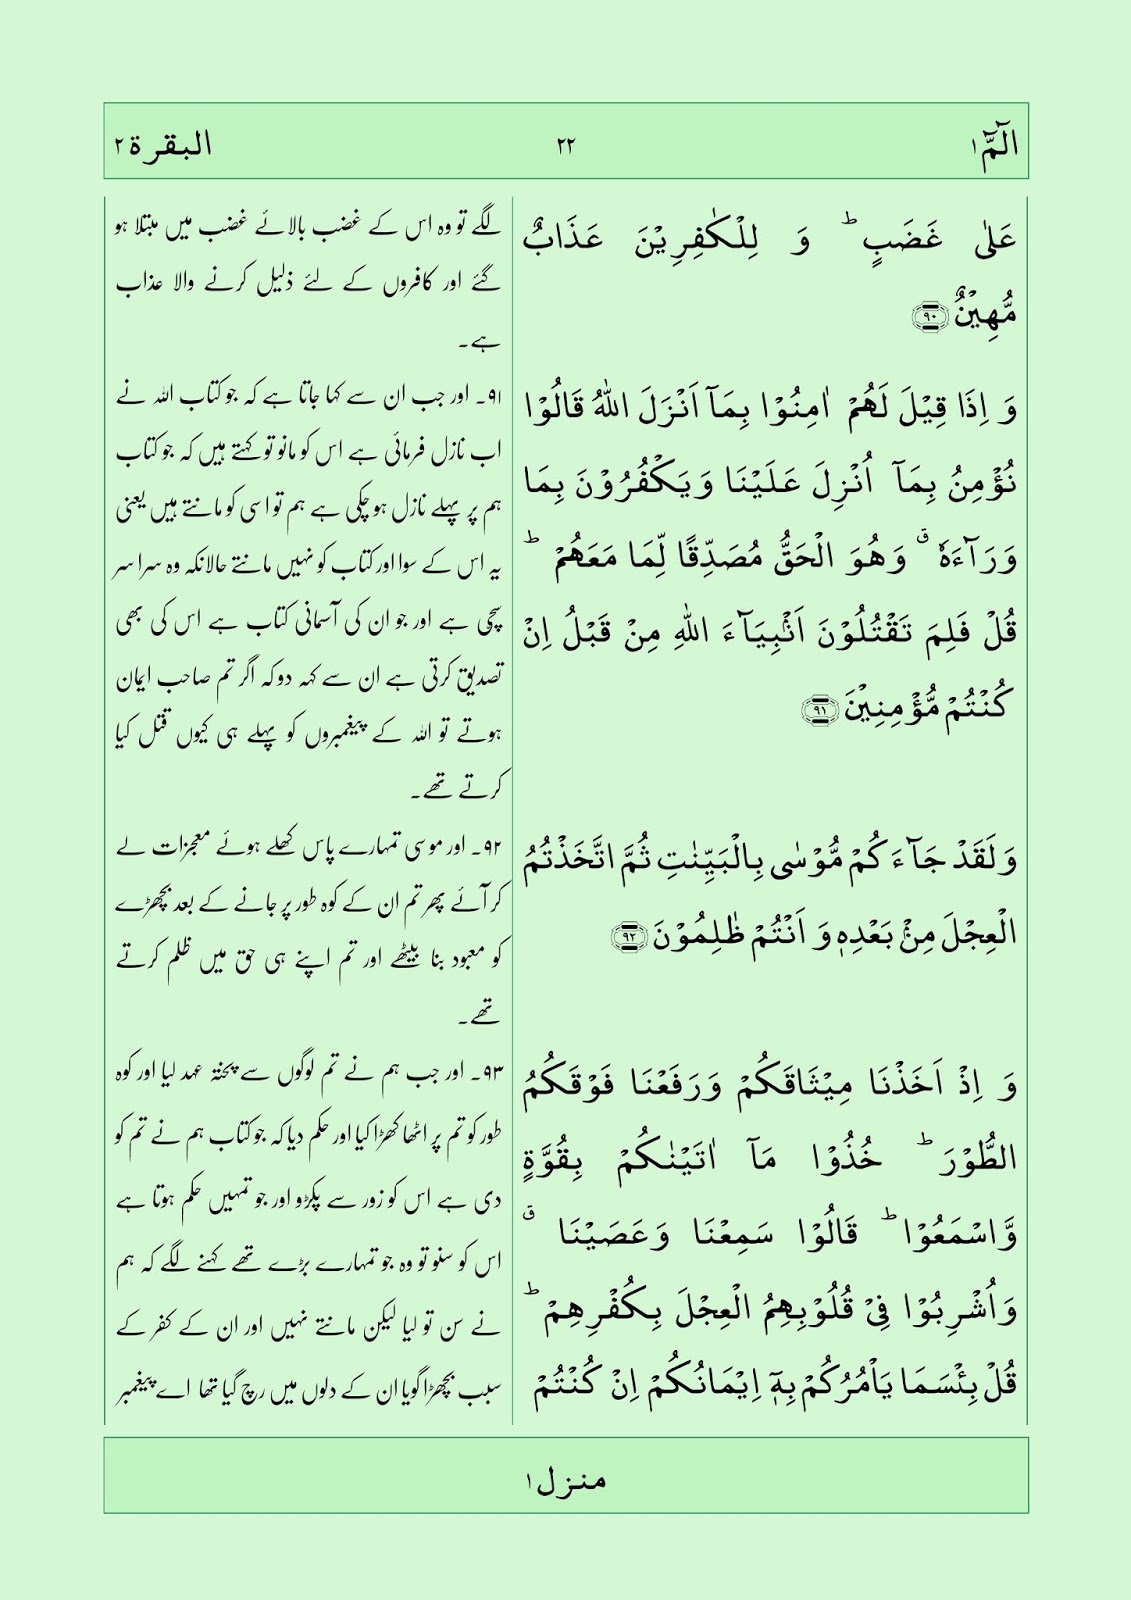 الٓمّٓ ١
٢٢
البقرة ٢
عَلٰی غَضَبٍ ؕ وَ لِلۡکٰفِرِیۡنَ عَذَابٌ
مُّہِیۡنٌ ﴿۹۰﴾
وَ اِذَا قِیۡلَ لَہُمۡ اٰمِنُوۡا بِمَاۤ اَنۡزَلَ اللّٰہُ قَالُوۡا
نُؤۡمِنُ بِمَاۤ اُنۡزِلَ عَلَیۡنَا وَ یَکۡفُرُوۡنَ بِمَا
وَرَآءَہٗ ٭ وَ ہُوَ الۡحَقُّ مُصَدِّقًا لِّمَا مَعَہُمۡ ؕ
قُلۡ فَلِمَ تَقۡتُلُوۡنَ اَنۡۢبِیَآءَ اللّٰہِ مِنۡ قَبۡلُ اِنۡ
کُنۡتُمۡ مُّؤۡمِنِیۡنَ ﴿۹۱﴾
وَ لَقَدۡ جَآءَکُمۡ مُّوۡسٰی بِالۡبَیِّنٰتِ ثُمَّ اتَّخَذۡتُمُ
الۡعِجۡلَ مِنۡۢ بَعۡدِہٖ وَ اَنۡتُمۡ ظٰلِمُوۡنَ ﴿۹۲﴾
وَ اِذۡ اَخَذۡنَا مِیۡثَاقَکُمۡ وَ رَفَعۡنَا فَوۡقَکُمُ
الطُّوۡرَ ؕ خُذُوۡا مَاۤ اٰتَیۡنٰکُمۡ بِقُوَّۃٍ
وَّ اسۡمَعُوۡا ؕ قَالُوۡا سَمِعۡنَا وَ عَصَیۡنَا ٭
وَ اُشۡرِبُوۡا فِیۡ قُلُوۡبِہِمُ الۡعِجۡلَ بِکُفۡرِہِمۡ ؕ
قُلۡ بِئۡسَمَا یَاۡمُرُکُمۡ بِہٖۤ اِیۡمَانُکُمۡ اِنۡ کُنۡتُمۡ
لگے تو وہ اس کے غضب بالائے غضب میں مبتلا ہو
گئے اور کافروں کے لئے ذلیل کرنے والا عذاب
ہے۔
۹۱۔ اور جب ان سے کہا جاتا ہے کہ جو کتاب اللہ نے
اب نازل فرمائی ہے اس کو مانو تو کہتے ہیں کہ جو کتاب
ہم پر پہلے نازل ہو چکی ہے ہم تو اسی کو مانتے ہیں یعنی
یہ اس کے سوا اور کتاب کو نہیں مانتے حالانکہ وہ سرا سر
سچی ہے اور جو ان کی آسمانی کتاب ہے اس کی بھی
تصدیق کرتی ہے ان سے کہہ دو کہ اگر تم صاحب ایمان
ہوتے تو اللہ کے پیغمبروں کو پہلے ہی کیوں قتل کیا
کرتے تھے۔
۹۲۔ اور موسی تمہارے پاس کھلے ہوئے معجزات لے
کر آئے پھر تم ان کے کوہ طور پر جانے کے بعد بچھڑے
کو معبود بنا بیٹھے اور تم اپنے ہی حق میں ظلم کرتے
تھے۔
۹۳۔ اور جب ہم نے تم لوگوں سے پختہ عہد لیا اور کوہ
طور کو تم پر اٹھا کھڑا کیا اور حکم دیا کہ جو کتاب ہم نے تم کو
دی ہے اس کو زور سے پکڑو اور جو تمہیں حکم ہوتا ہے
اس کو سنو تو وہ جو تمہارے بڑے تھے کہنے لگے کہ ہم
نے سن تو لیا لیکن مانتے نہیں اور ان کے کفر کے
سبب بچھڑا گویا ان کے دلوں میں رچ گیا تھا اے پیغمبر
منزل ١